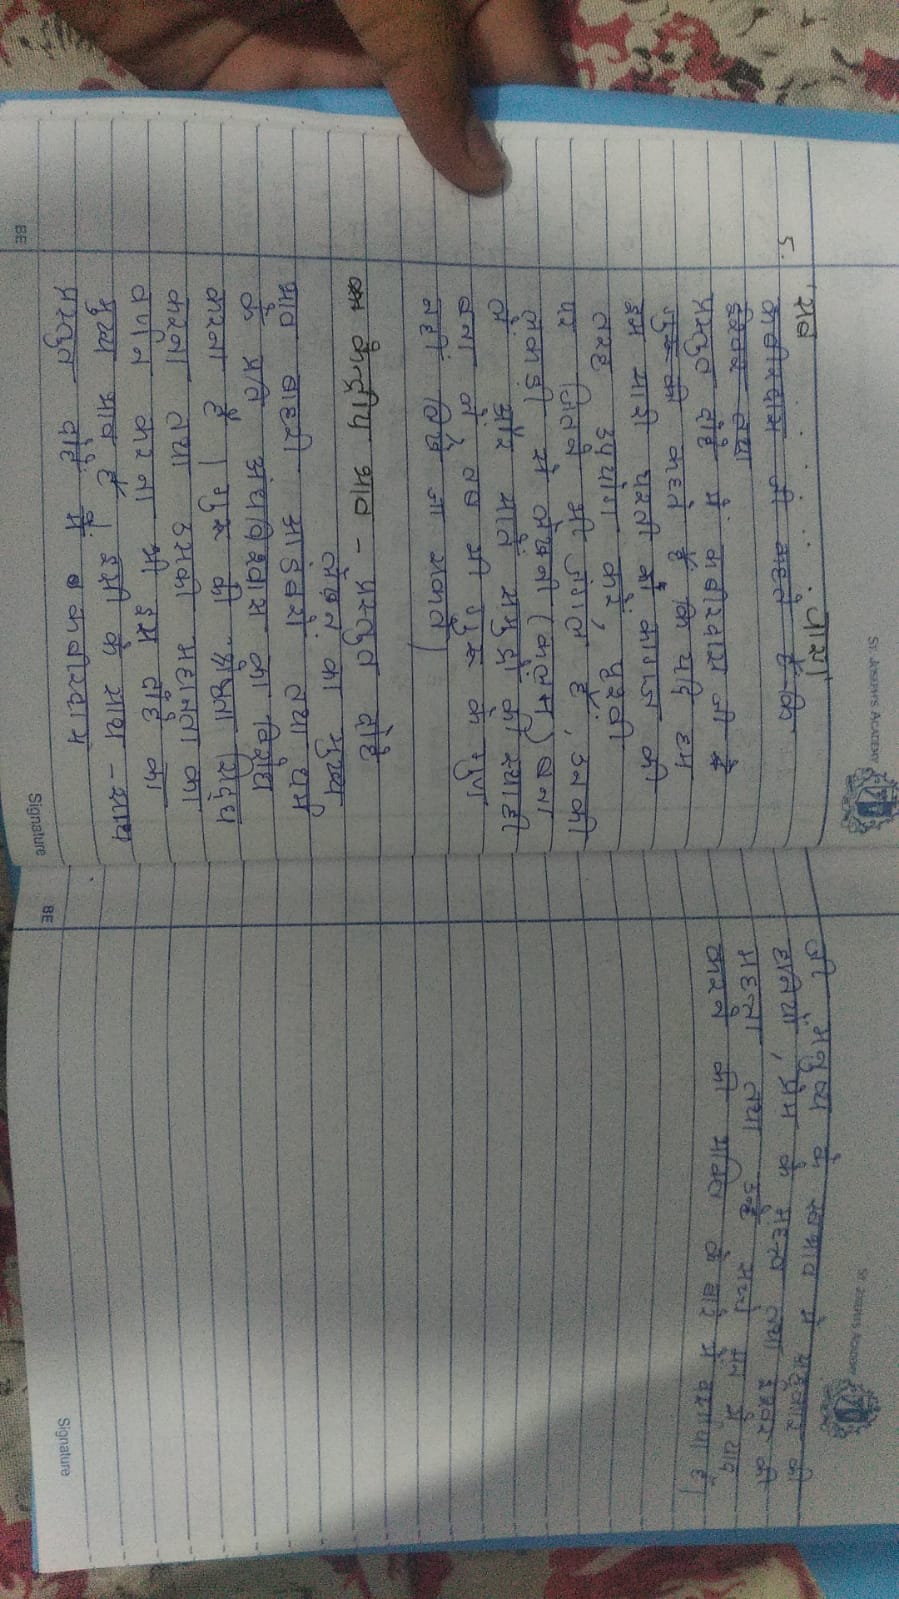 ST. JOSEPH'S ACADEMY
5. 'सब . . . . . . . . जाय।'
कबीरदास जी कहते हैं कि
ईश्वर तथा
प्रस्तुत दोहे में कबीरदास जी
गुरु की कहते हैं कि यदि हम
इस सारी धरती को कागज की
तरह उपयोग करें, पृथ्वी
पर जितने भी जंगल हैं, उनकी
लकड़ी से लेखनी (कलम) बना
लें और सातों समुद्रों की स्याही
बना लें, तब भी गुरु के गुण
नहीं लिखे जा सकते।
केन्द्रीय भाव - प्रस्तुत दोहे
लेखन का मुख्य
भाव बाहरी आडंबरों तथा धर्म
के प्रति अंधविश्वास का विरोध
करना है। गुरु की श्रेष्ठता स्पष्ट
करना तथा उसकी महानता का
वर्णन करना भी इस दोहे का
मुख्य भाव है। इसी के साथ-साथ
प्रस्तुत दोहे में कबीरदास
BE
Signature
ST. JOSEPH'S ACADEMY
जी मनुष्य के स्वभाव में अहंकार की
हानियों, प्रेम के महत्व तथा ईश्वर की
महत्ता तथा उन्हें सच्चे मन से याद
करने की भक्ति के बारे में बताया है।
BE
Signature